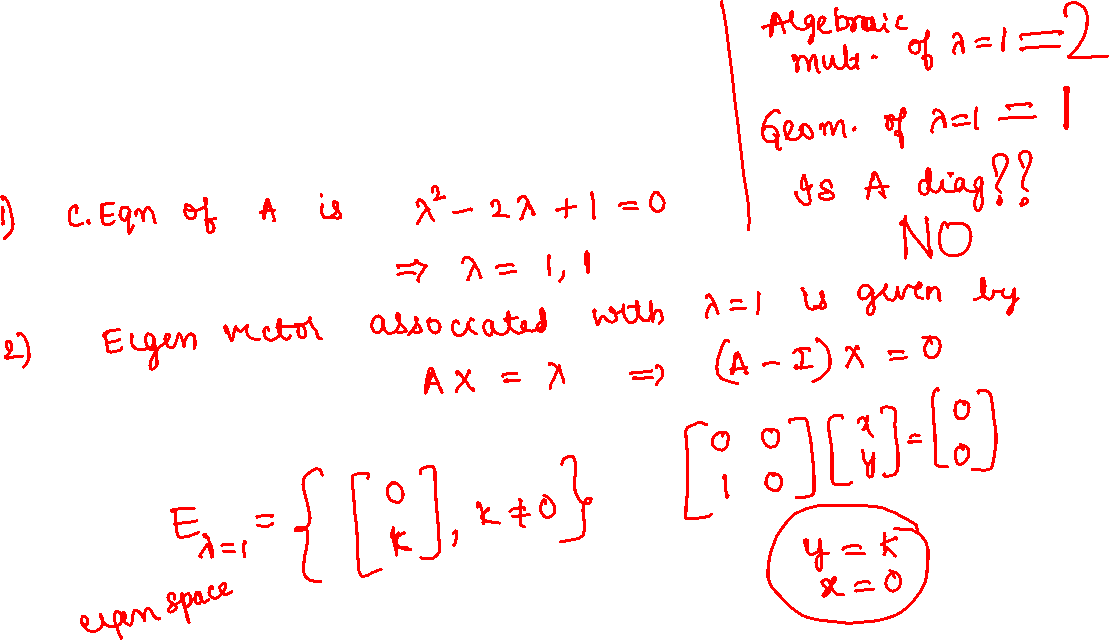 Algebraic
mult. of λ=1 = 2
Geom. of λ=1 = 1
Is A diag??
NO
1) C.Eqn of A is λ² - 2λ + 1 = 0
⇒ λ = 1, 1
2) Eigen vector associated with λ=1 is given by
AX = λ ⇒ (A - I) X = 0
[0 0; 1 0] [x; y] = [0; 0]
E_{λ=1} = { [0; k], k ≠ 0 }
eigen space
y = k
x = 0